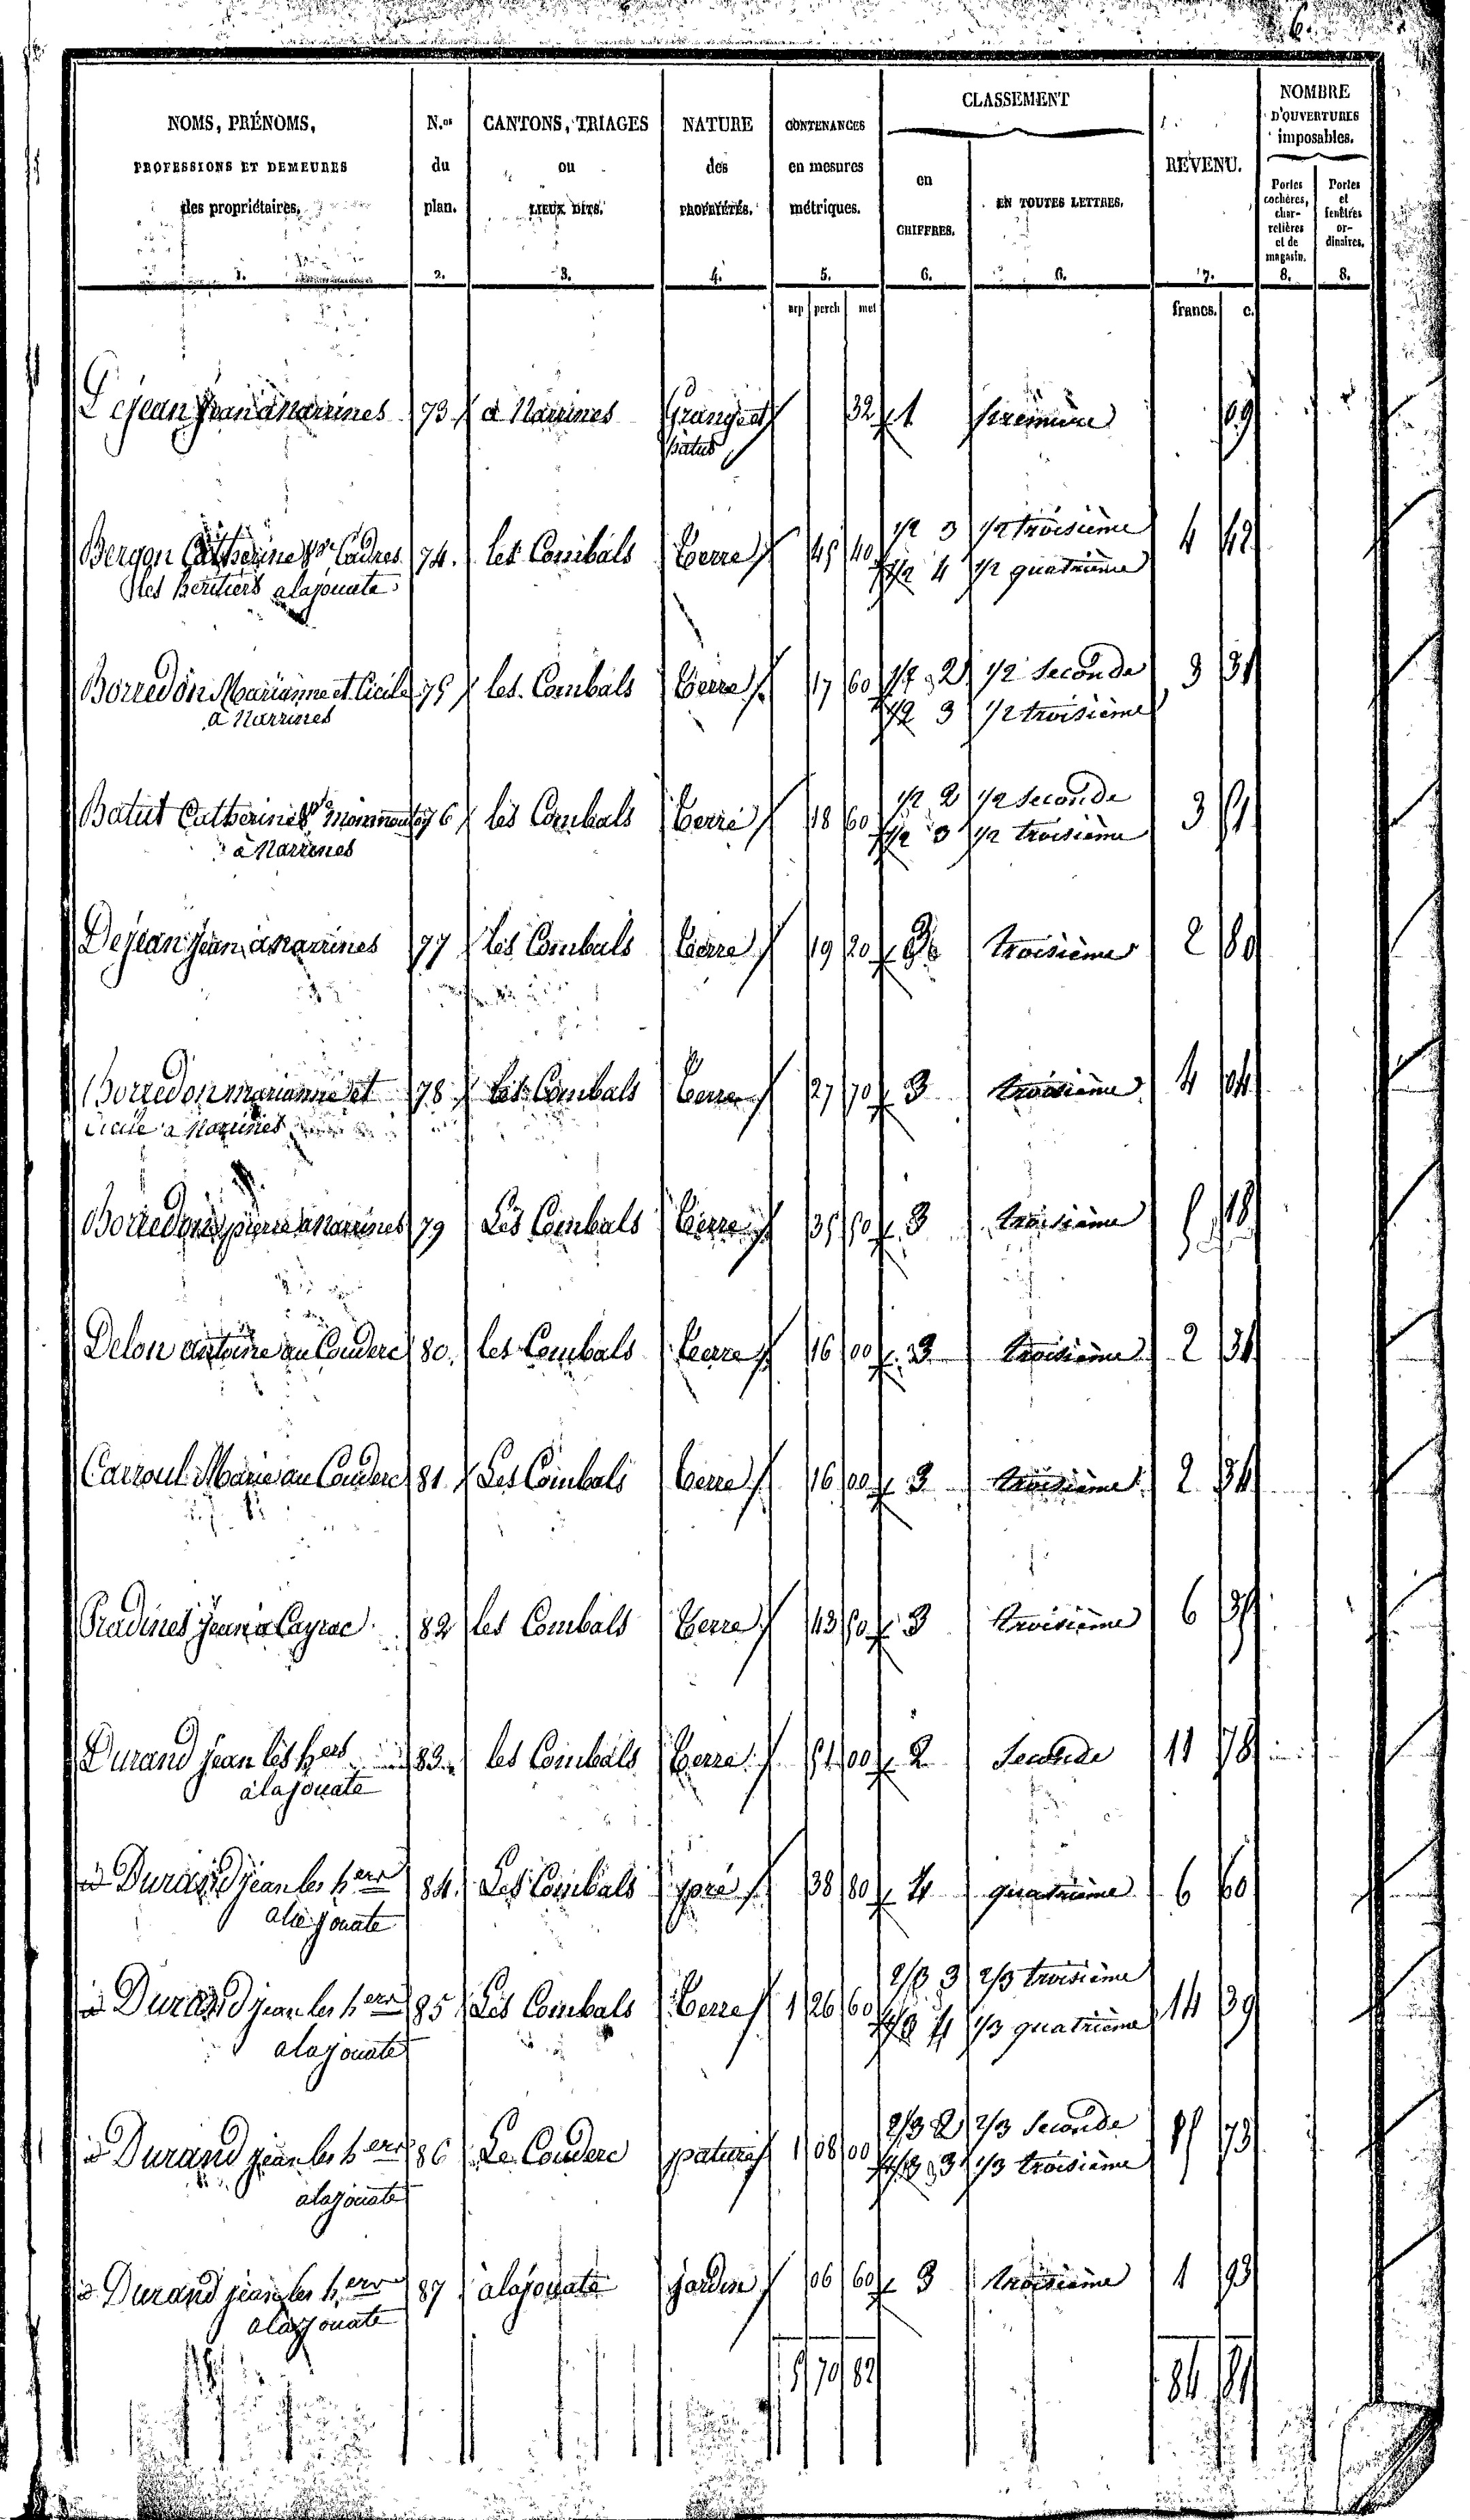 6.
NOMS, PRÉNOMS,
PROFESSIONS ET DEMEURES
des propriétaires.
1.
N.os
du
plan.
2.
CANTONS, TRIAGES
ou
LIEUX DITS.
3.
NATURE
des
PROPRIÉTÉS.
4.
CONTENANCES
en mesures
métriques.
5.
CLASSEMENT
en
CHIFFRES.
6.
EN TOUTES LETTRES.
6.
REVENU.
7.
NOMBRE
D'OUVERTURES
imposables.
Portes cochères, char-retières et de magasin.
8.
Portes et fenêtres or-dinaires.
8.
arp perch met francs. c.
Dejean Jean à Narrines 73 à Narrines Grange et 32 1 première 09
patus
Bergon Catherine Vve Cadres 74. les Combals terre 45 40 1/2 3 1/2 troisième 4 42
les heritiers alajouate 1/2 4 1/2 quatrième
Borredon Marianne et Cicile 75 les Combals terre 17 60 1/2 2 1/2 Seconde 3 31
a Narrines 1/2 3 1/2 troisième
Batut Catherine Vve 76 les Combals terre 18 60 1/2 2 1/2 Seconde 3
à Narrines 1/2 3 1/2 troisième
Dejean Jean a Narrines 77 les Combals terre 19 20 3 troisième 2 80
Borredon marianne et 78 les Combals terre 27 70 3 troisième 4 04
Cicile a Narrines
Borredon pierre a Narrines 79 Les Combals terre 35 50 3 troisième 5 18
Delon antoine au Couderc 80. les Combals terre 16 00 3 troisième 2 34
Carroul Marie au Couderc 81 Les Combals terre 16 00 3 troisième 2 34
Pradines Jean a Cayrac 82 les Combals terre 43 50 3 troisième 6 35
Durand Jean les hers 83. les Combals terre 51 00 2 Seconde 11 78
alajouate
Durand jean les hers 84. Les Combals pré 38 80 4 quatrième 6 60
alajouate
Durand jean les hers 85 Les Combals terre 1 26 60 2/3 3 2/3 troisième 14 39
alajouate 1/3 4 1/3 quatrième
Durand jean les hers 86 Le Couderc patures 1 08 00 2/3 2 2/3 Seconde 15 73
alajouate 1/3 3 1/3 troisième
Durand jean les hers 87 alajouate jardin 06 60 3 troisième 1 93
alajouate
5 70 82 84 81